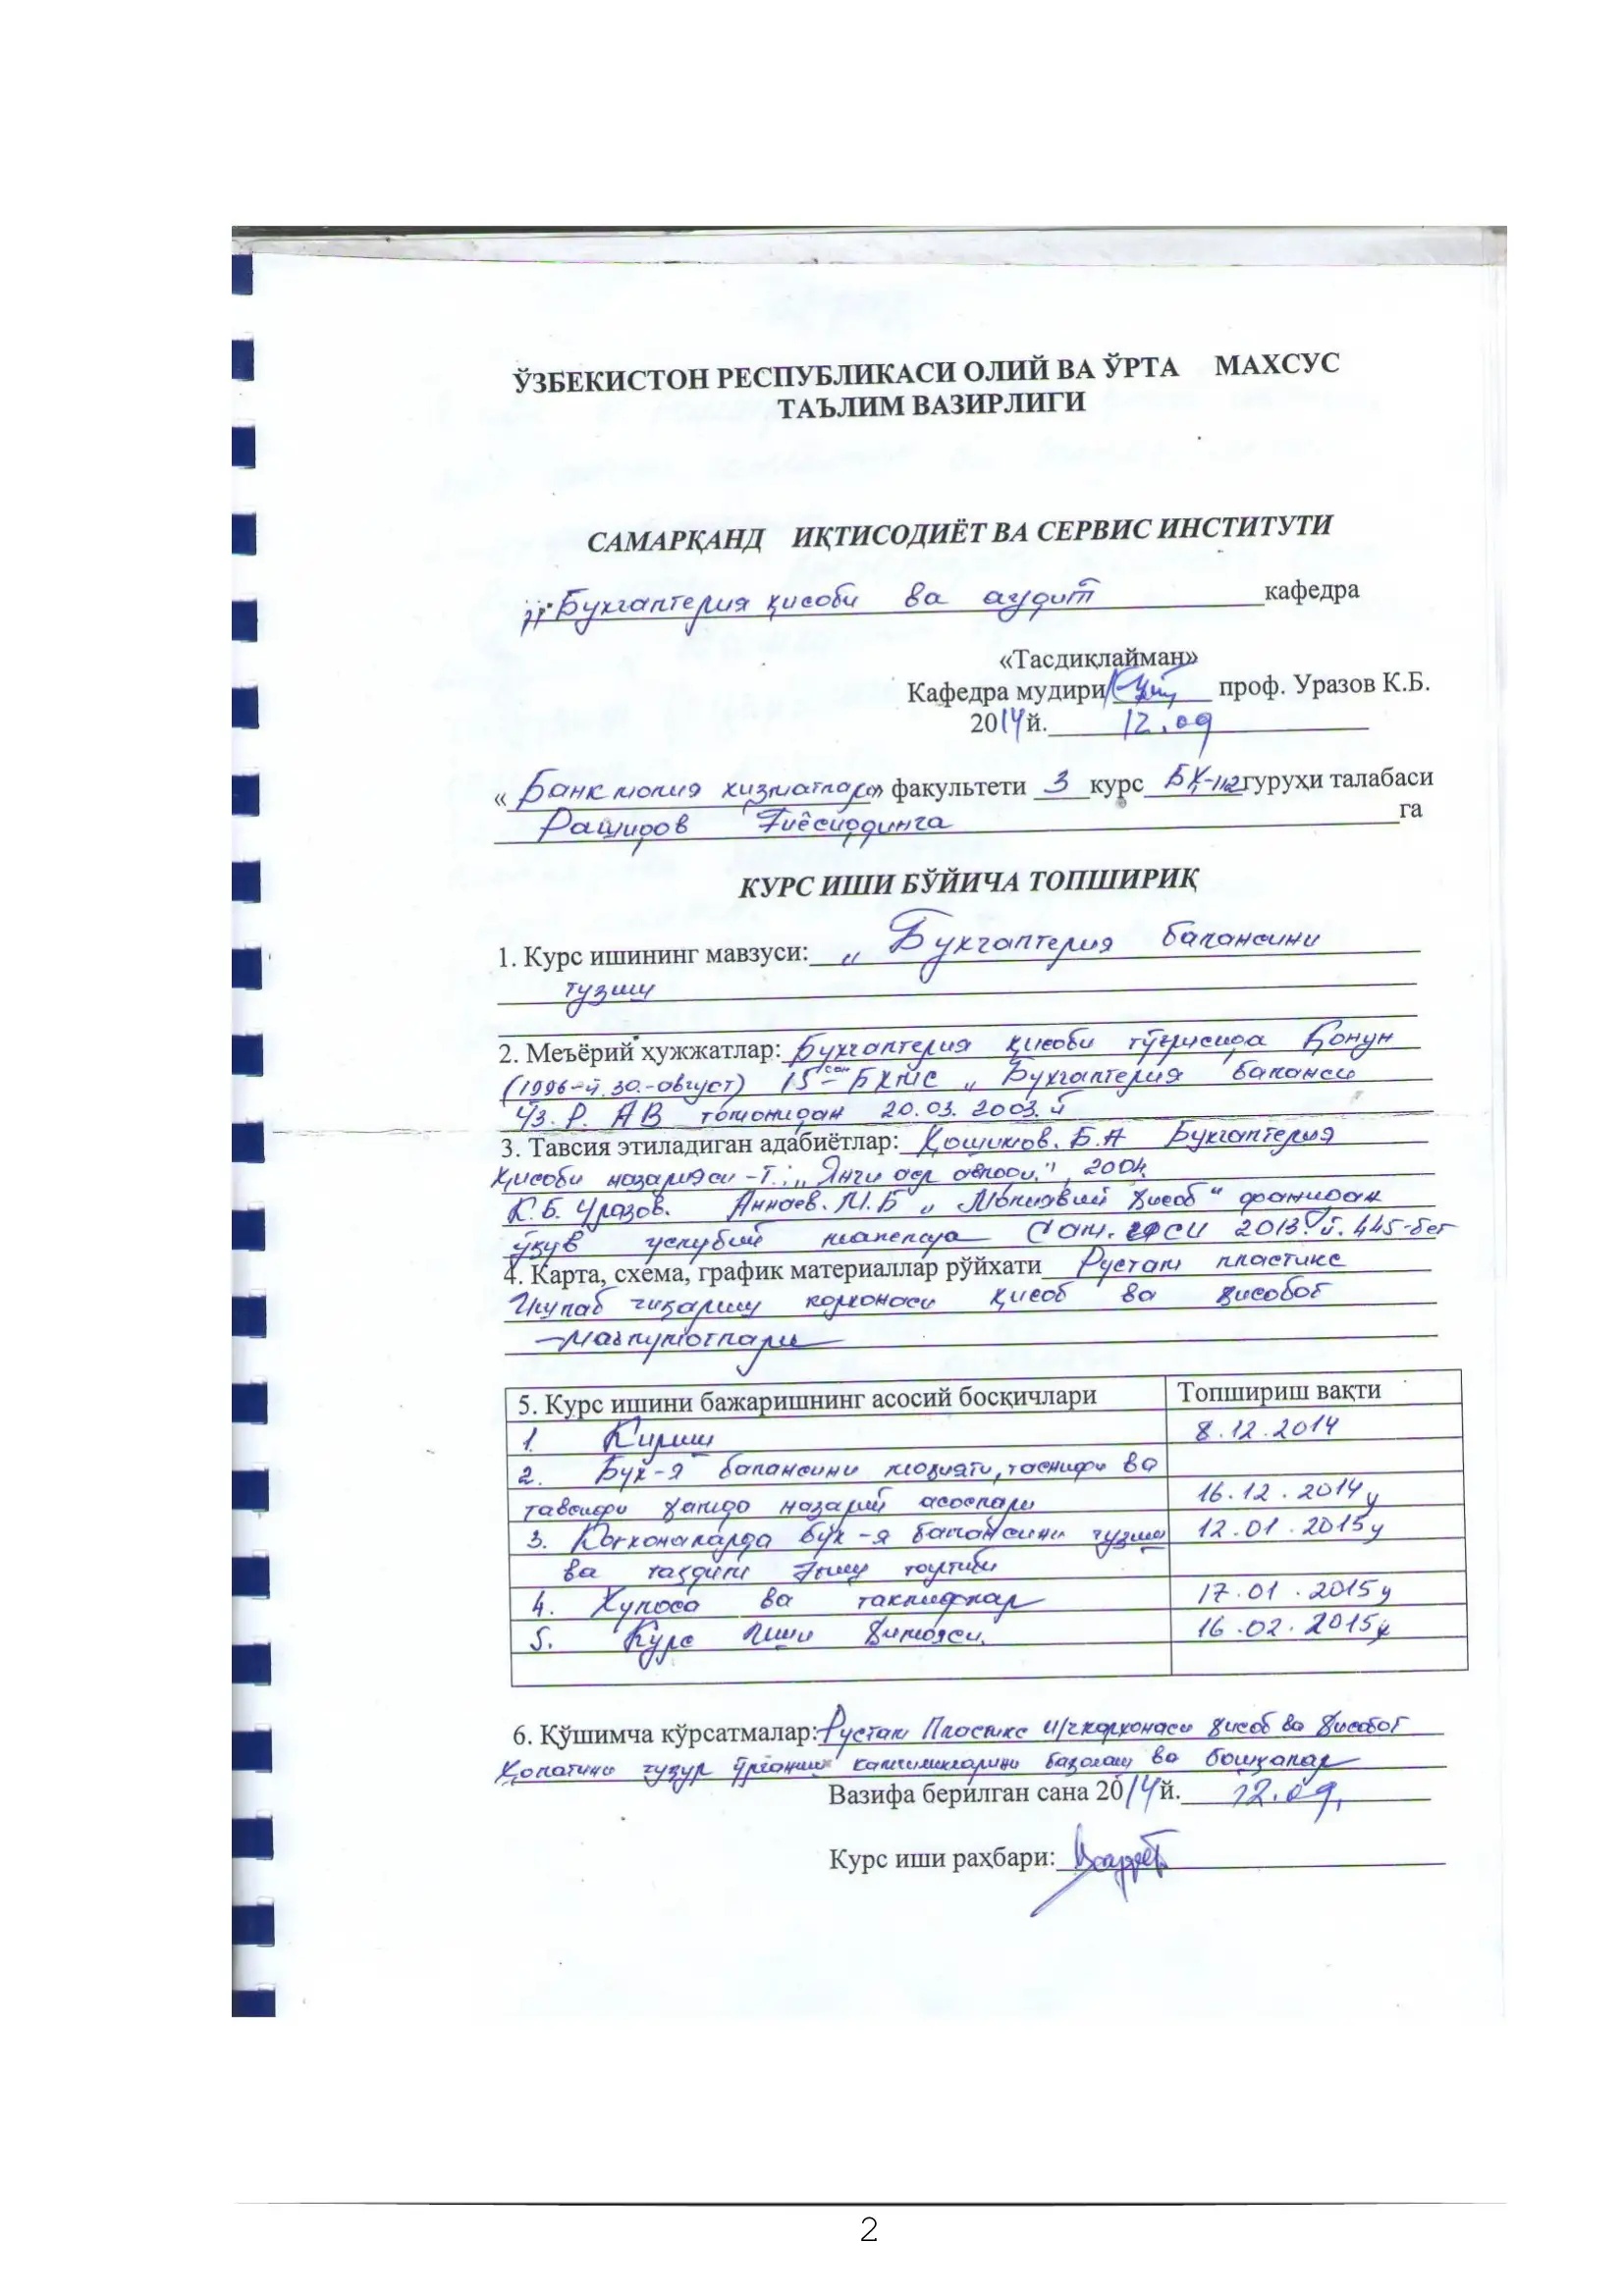 ЎЗБЕКИСТОН РЕСПУБЛИКАСИ ОЛИЙ ВА ЎРТА МАХСУС
ТАЪЛИМ ВАЗИРЛИГИ
САМАРҚАНД ИҚТИСОДИЁТ ВА СЕРВИС ИНСТИТУТИ
„Бухгалтерия ҳисоби ва аудит кафедра
«Тасдиқлайман»
Кафедра мудири проф. Уразов К.Б.
2014й. 12.09
«Банк молия хизматлар» факультети 3 курс БҲ-112 гуруҳи талабаси
Рашидов Ғиёсиддинга га
КУРС ИШИ БЎЙИЧА ТОПШИРИҚ
1. Курс ишининг мавзуси: „ Бухгалтерия балансини
тузиш
2. Меъёрий ҳужжатлар: Бухгалтерия ҳисоби тўғрисида Қонун
(1996-й. 30.-август) 15-сон БҲМС „ Бухгалтерия баланси
Ўз. Р. АВ томонидан 20.03.2003.й
3. Тавсия этиладиган адабиётлар: Ҳошимов. Б.А Бухгалтерия
ҳисоби назарияси -Т.: „Янги аср авлоди", 2004.
К.Б. Уразов. М.Б „ Молиявий ҳисоб" фанидан
ўқув услубий Сам. 2013.й. 445-бет
4. Карта, схема, график материаллар рўйхати Рустам пластикс
Ишлаб чиқариш корхонаси ҳисоб ва ҳисобот
маълумотлари
5. Курс ишини бажаришнинг асосий босқичлари Топшириш вақти
1. Кириш 8.12.2014
2. Бух-я балансини моҳияти, таснифи ва
тавсифи ҳамда назарий асослари 16.12.2014й
3. Корхоналарда бух-я балансини тузиш 12.01.2015й
ва тақдим этиш тартиби
4. Хулоса ва таклифлар 17.01.2015й
5. Курс иши ҳимояси. 16.02.2015й
6. Қўшимча кўрсатмалар: Рустам Пластикс и/ч корхонаси ҳисоб ва ҳисобот
ҳолатини чуқур ўрганиш камчиликларини баҳолаш ва бошқалар
Вазифа берилган сана 2014й. 12.09.
Курс иши раҳбари:
2